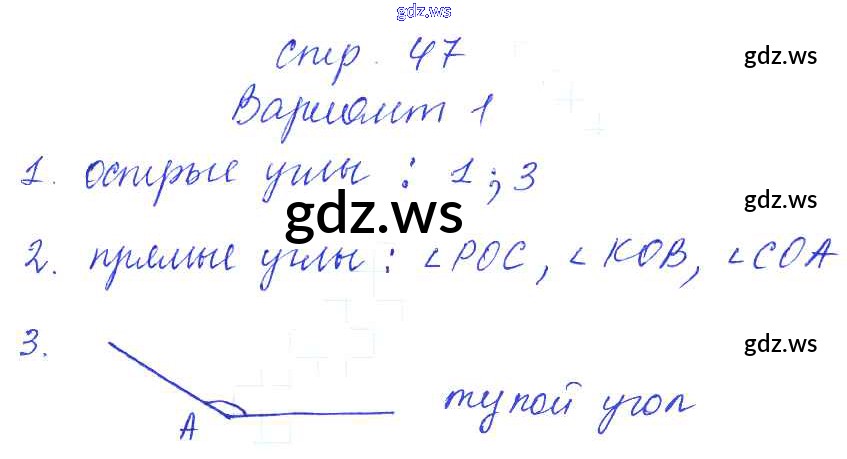 gdz.ws
стр. 47
gdz.ws
Вариант 1
1. острые углы : 1 ; 3
gdz.ws
gdz.ws
2. прямые углы : ∠POC, ∠KOB, ∠COA
3.
gdz.ws
A
тупой угол